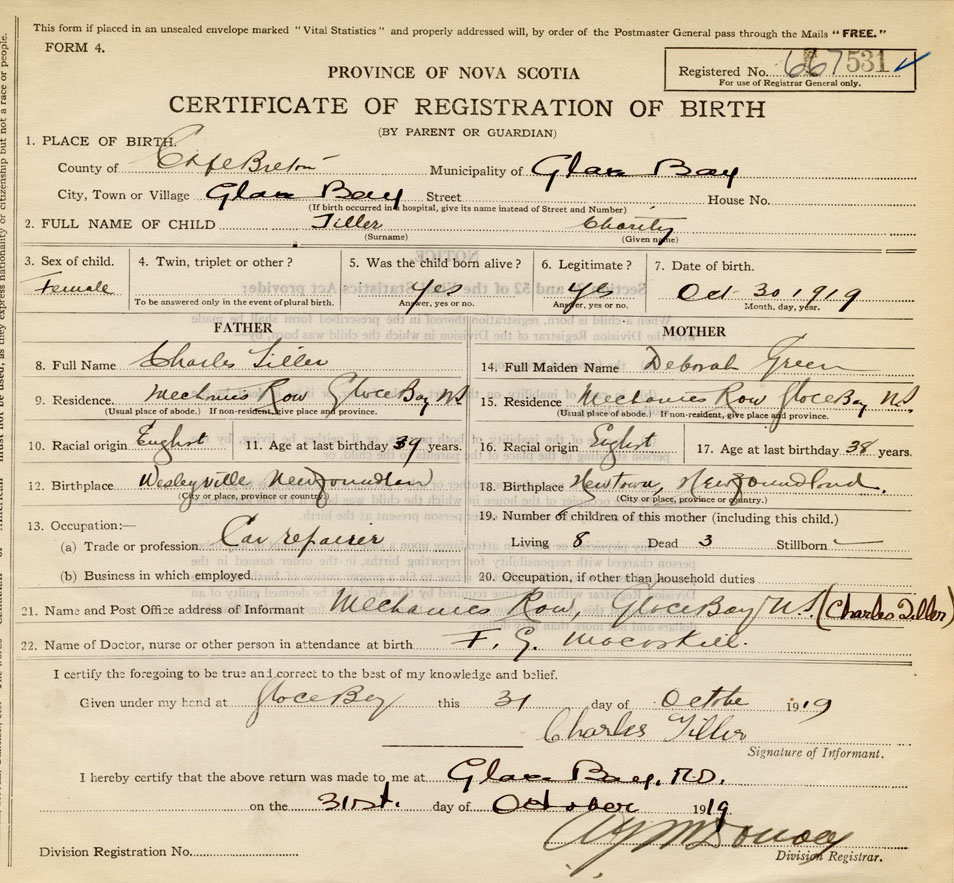 This form if placed in an unsealed envelope marked "Vital Statistics" and properly addressed will, by order of the Postmaster General pass through the Mails "FREE."
FORM 4.
Registered No. 667531
For use of Registrar General only.
PROVINCE OF NOVA SCOTIA
CERTIFICATE OF REGISTRATION OF BIRTH
(BY PARENT OR GUARDIAN)
1. PLACE OF BIRTH.
County of Cape Breton Municipality of Glace Bay
City, Town or Village Glace Bay Street House No.
(If birth occurred in a hospital, give its name instead of Street and Number)
2. FULL NAME OF CHILD Tiller Charity
(Surname) (Given name)
3. Sex of child. 4. Twin, triplet or other? 5. Was the child born alive? 6. Legitimate? 7. Date of birth.
Female yes yes Oct 30 1919
To be answered only in the event of plural birth. Answer, yes or no. Answer, yes or no. Month, day, year.
FATHER MOTHER
8. Full Name Charles Tiller 14. Full Maiden Name Deborah Green
9. Residence. Mechanics Row Glace Bay NS 15. Residence Mechanics Row Glace Bay NS.
(Usual place of abode.) If non-resident, give place and province. (Usual place of abode.) If non-resident, give place and province.
10. Racial origin English 11. Age at last birthday 39 years. 16. Racial origin English 17. Age at last birthday 38 years.
12. Birthplace Wesleyville 18. Birthplace Newtown, Newfoundland.
(City or place, province or country) (City or place, province or country.)
13. Occupation:— 19. Number of children of this mother (including this child.)
(a) Trade or profession Car repairer Living 8 Dead 3 Stillborn —
(b) Business in which employed 20. Occupation, if other than household duties
21. Name and Post Office address of Informant Mechanics Row, Glace Bay NS (Charles Tiller)
22. Name of Doctor, nurse or other person in attendance at birth F. G.
I certify the foregoing to be true and correct to the best of my knowledge and belief.
Given under my hand at Glace Bay this 31 day of 1919
Charles Tiller
Signature of Informant.
I hereby certify that the above return was made to me at Glace Bay,
on the 31st. day of October 1919
Division Registrar.
Division Registration No.